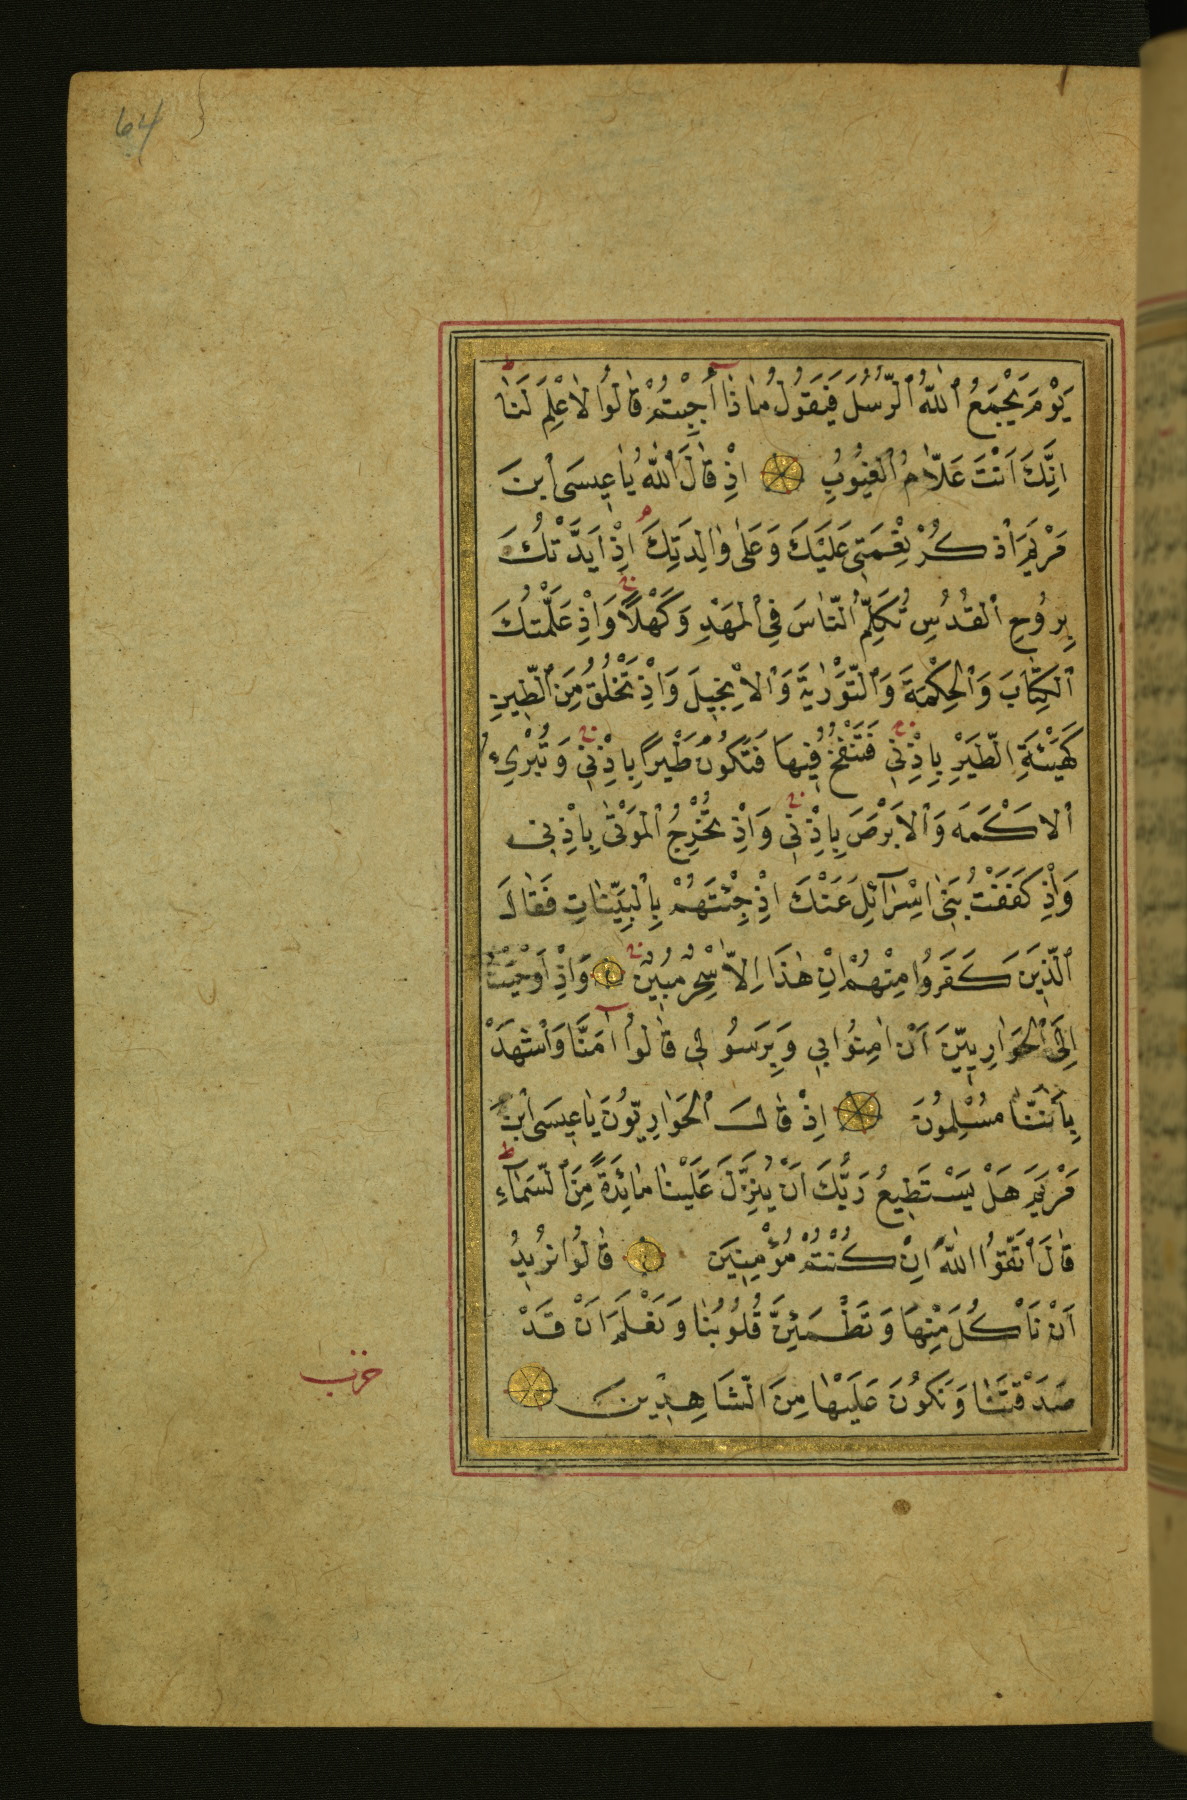 64
يَوْمَ يَجْمَعُ ٱللّٰهُ ٱلرُّسُلَ فَيَقُولُ مَاذَا أُجِبْتُمْ قَالُوا لَا عِلْمَ لَنَا ط
اِنَّكَ اَنْتَ عَلَّامُ ٱلْغُيُوبِ اِذْ قَالَ ٱللّٰهُ يَا عِيسَى ٱبْنَ
مَرْيَمَ ٱذْكُرْ نِعْمَتِى عَلَيْكَ وَعَلٰى وَالِدَتِكَ م اِذْ اَيَّدْتُكَ
بِرُوحِ ٱلْقُدُسِ تُكَلِّمُ ٱلنَّاسَ فِى ٱلْمَهْدِ وَكَهْلًا ج وَاِذْ عَلَّمْتُكَ
ٱلْكِتَابَ وَٱلْحِكْمَةَ وَٱلتَّوْرٰيةَ وَٱلْاِنْجِيلَ وَاِذْ تَخْلُقُ مِنَ ٱلطِّينِ
كَهَيْئَةِ ٱلطَّيْرِ بِاِذْنِى ج فَتَنْفُخُ فِيهَا فَتَكُونُ طَيْرًا بِاِذْنِى ج وَتُبْرِئُ
ٱلْاَكْمَهَ وَٱلْاَبْرَصَ بِاِذْنِى ج وَاِذْ تُخْرِجُ ٱلْمَوْتٰى بِاِذْنِى
وَاِذْ كَفَفْتُ بَنِى اِسْرَآئِلَ عَنْكَ اِذْ جِئْتَهُمْ بِٱلْبَيِّنَاتِ فَقَالَ
ٱلَّذِينَ كَفَرُوا مِنْهُمْ اِنْ هٰذَا اِلَّا سِحْرٌ مُبِينٌ ج وَاِذْ اَوْحَيْتُ
اِلَى ٱلْحَوَارِيِّينَ اَنْ اٰمِنُوا بِى وَبِرَسُولِى قَالُوا اٰمَنَّا وَٱشْهَدْ
بِاَنَّنَا مُسْلِمُونَ اِذْ قَالَ ٱلْحَوَارِيُّونَ يَا عِيسَى ٱبْنَ
مَرْيَمَ هَلْ يَسْتَطِيعُ رَبُّكَ اَنْ يُنَزِّلَ عَلَيْنَا مَائِدَةً مِنَ ٱلسَّمَآءِ ط
قَالَ ٱتَّقُوا اللّٰهَ اِنْ كُنْتُمْ مُؤْمِنِينَ قَالُوا نُرِيدُ
اَنْ نَأْكُلَ مِنْهَا وَتَطْمَئِنَّ قُلُوبُنَا وَنَعْلَمَ اَنْ قَدْ
صَدَقْتَنَا وَنَكُونَ عَلَيْهَا مِنَ الشَّاهِدِينَ
حزب